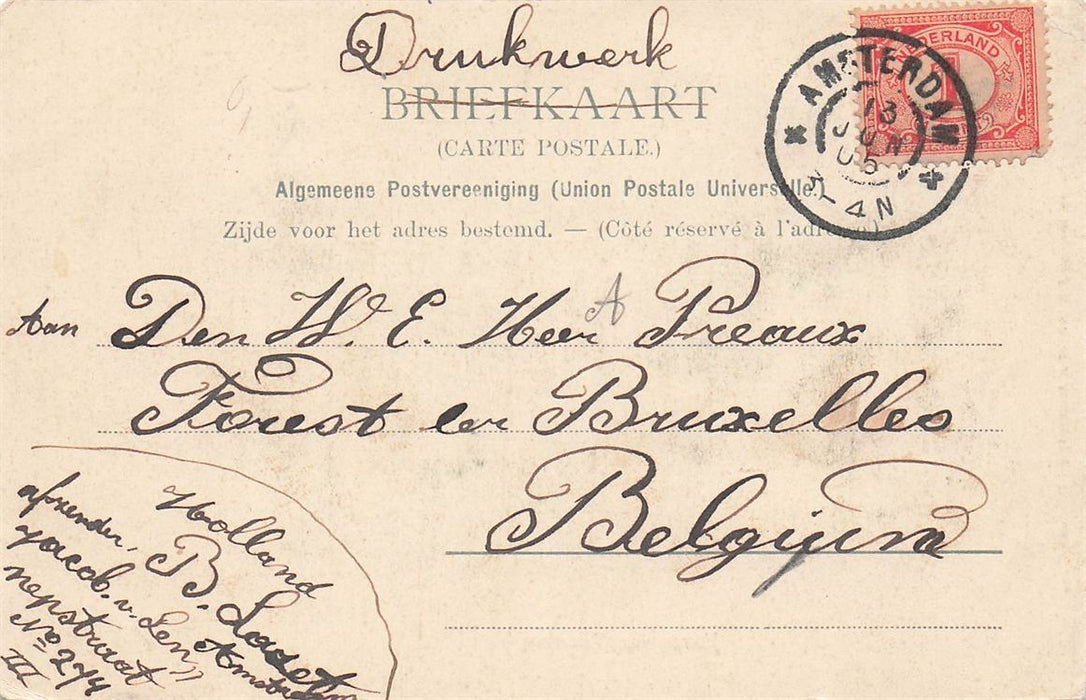 Drukwerk
BRIEFKAART
(CARTE POSTALE.)
Algemeene Postvereeniging (Union Postale Universelle.)
Zijde voor het adres bestemd. — (Côté réservé à l'adresse)
NEDERLAND
1
AMSTERDAM
13
JUN
05
-4 N
A
Aan Den W. E. Heer Preaux
Forest ler Bruxelles
Belgijum
Holland
B.
Amst
afzender,
Jacob. v. Len
nepstraat
No 274
III